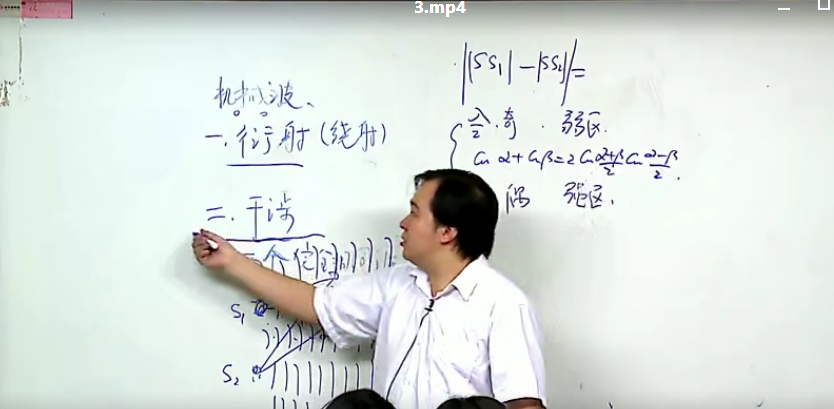 3.mp4
机械波、
一.衍射(绕射)
二.干涉
S₁
S₂
||SS₁|-|SS₂||=
λ/2·奇 . 弱区.
Cos α+Cos β=2 Cos α+β/2 Cos α-β/2.
偶 强区.